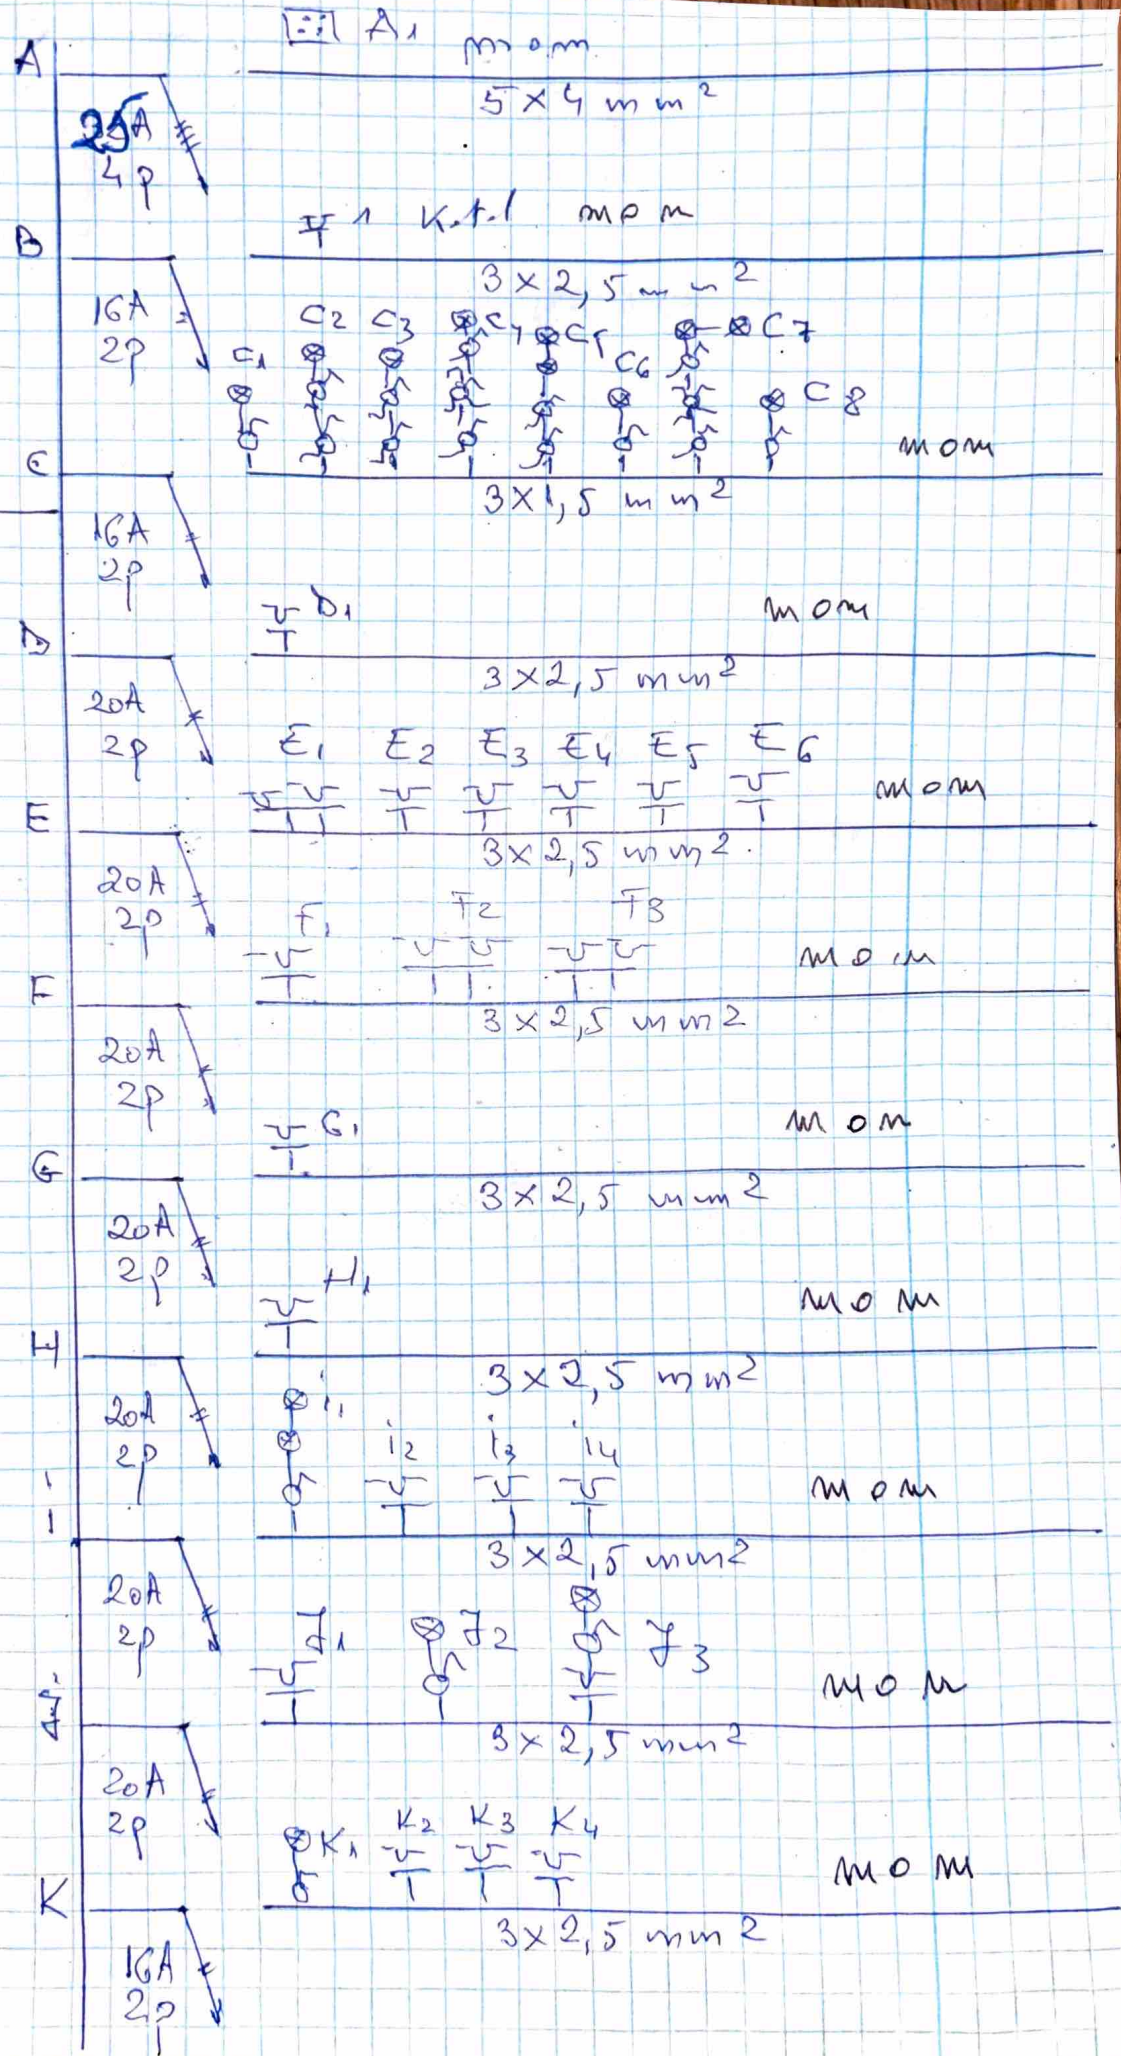 A1 mom
A
5 x 4 mm²
25A
4p
1 K.t.l mom
B
3 x 2,5 mm²
16A
2p
C1 C2 C3 C4 C5 C6 C7 C8
mom
C
3x1,5 mm²
16A
2p
D1 mom
D
3 x 2,5 mm²
20A
2p
E1 E2 E3 E4 E5 E6
mom
E
3x2,5 mm²
20A
2p
F1 F2 F3
mom
F
3 x 2,5 mm2
20A
2p
G1 mom
G
3 x 2,5 mm2
20A
2p
H1
mom
H
3 x 2,5 mm2
20A
2p
i1 i2 i3 i4
mom
I
3 x 2,5 mm2
20A
2p
J1 J2 J3
mom
3 x 2,5 mm2
20A
2p
K1 K2 K3 K4
mom
K
3x2,5 mm2
16A
2p